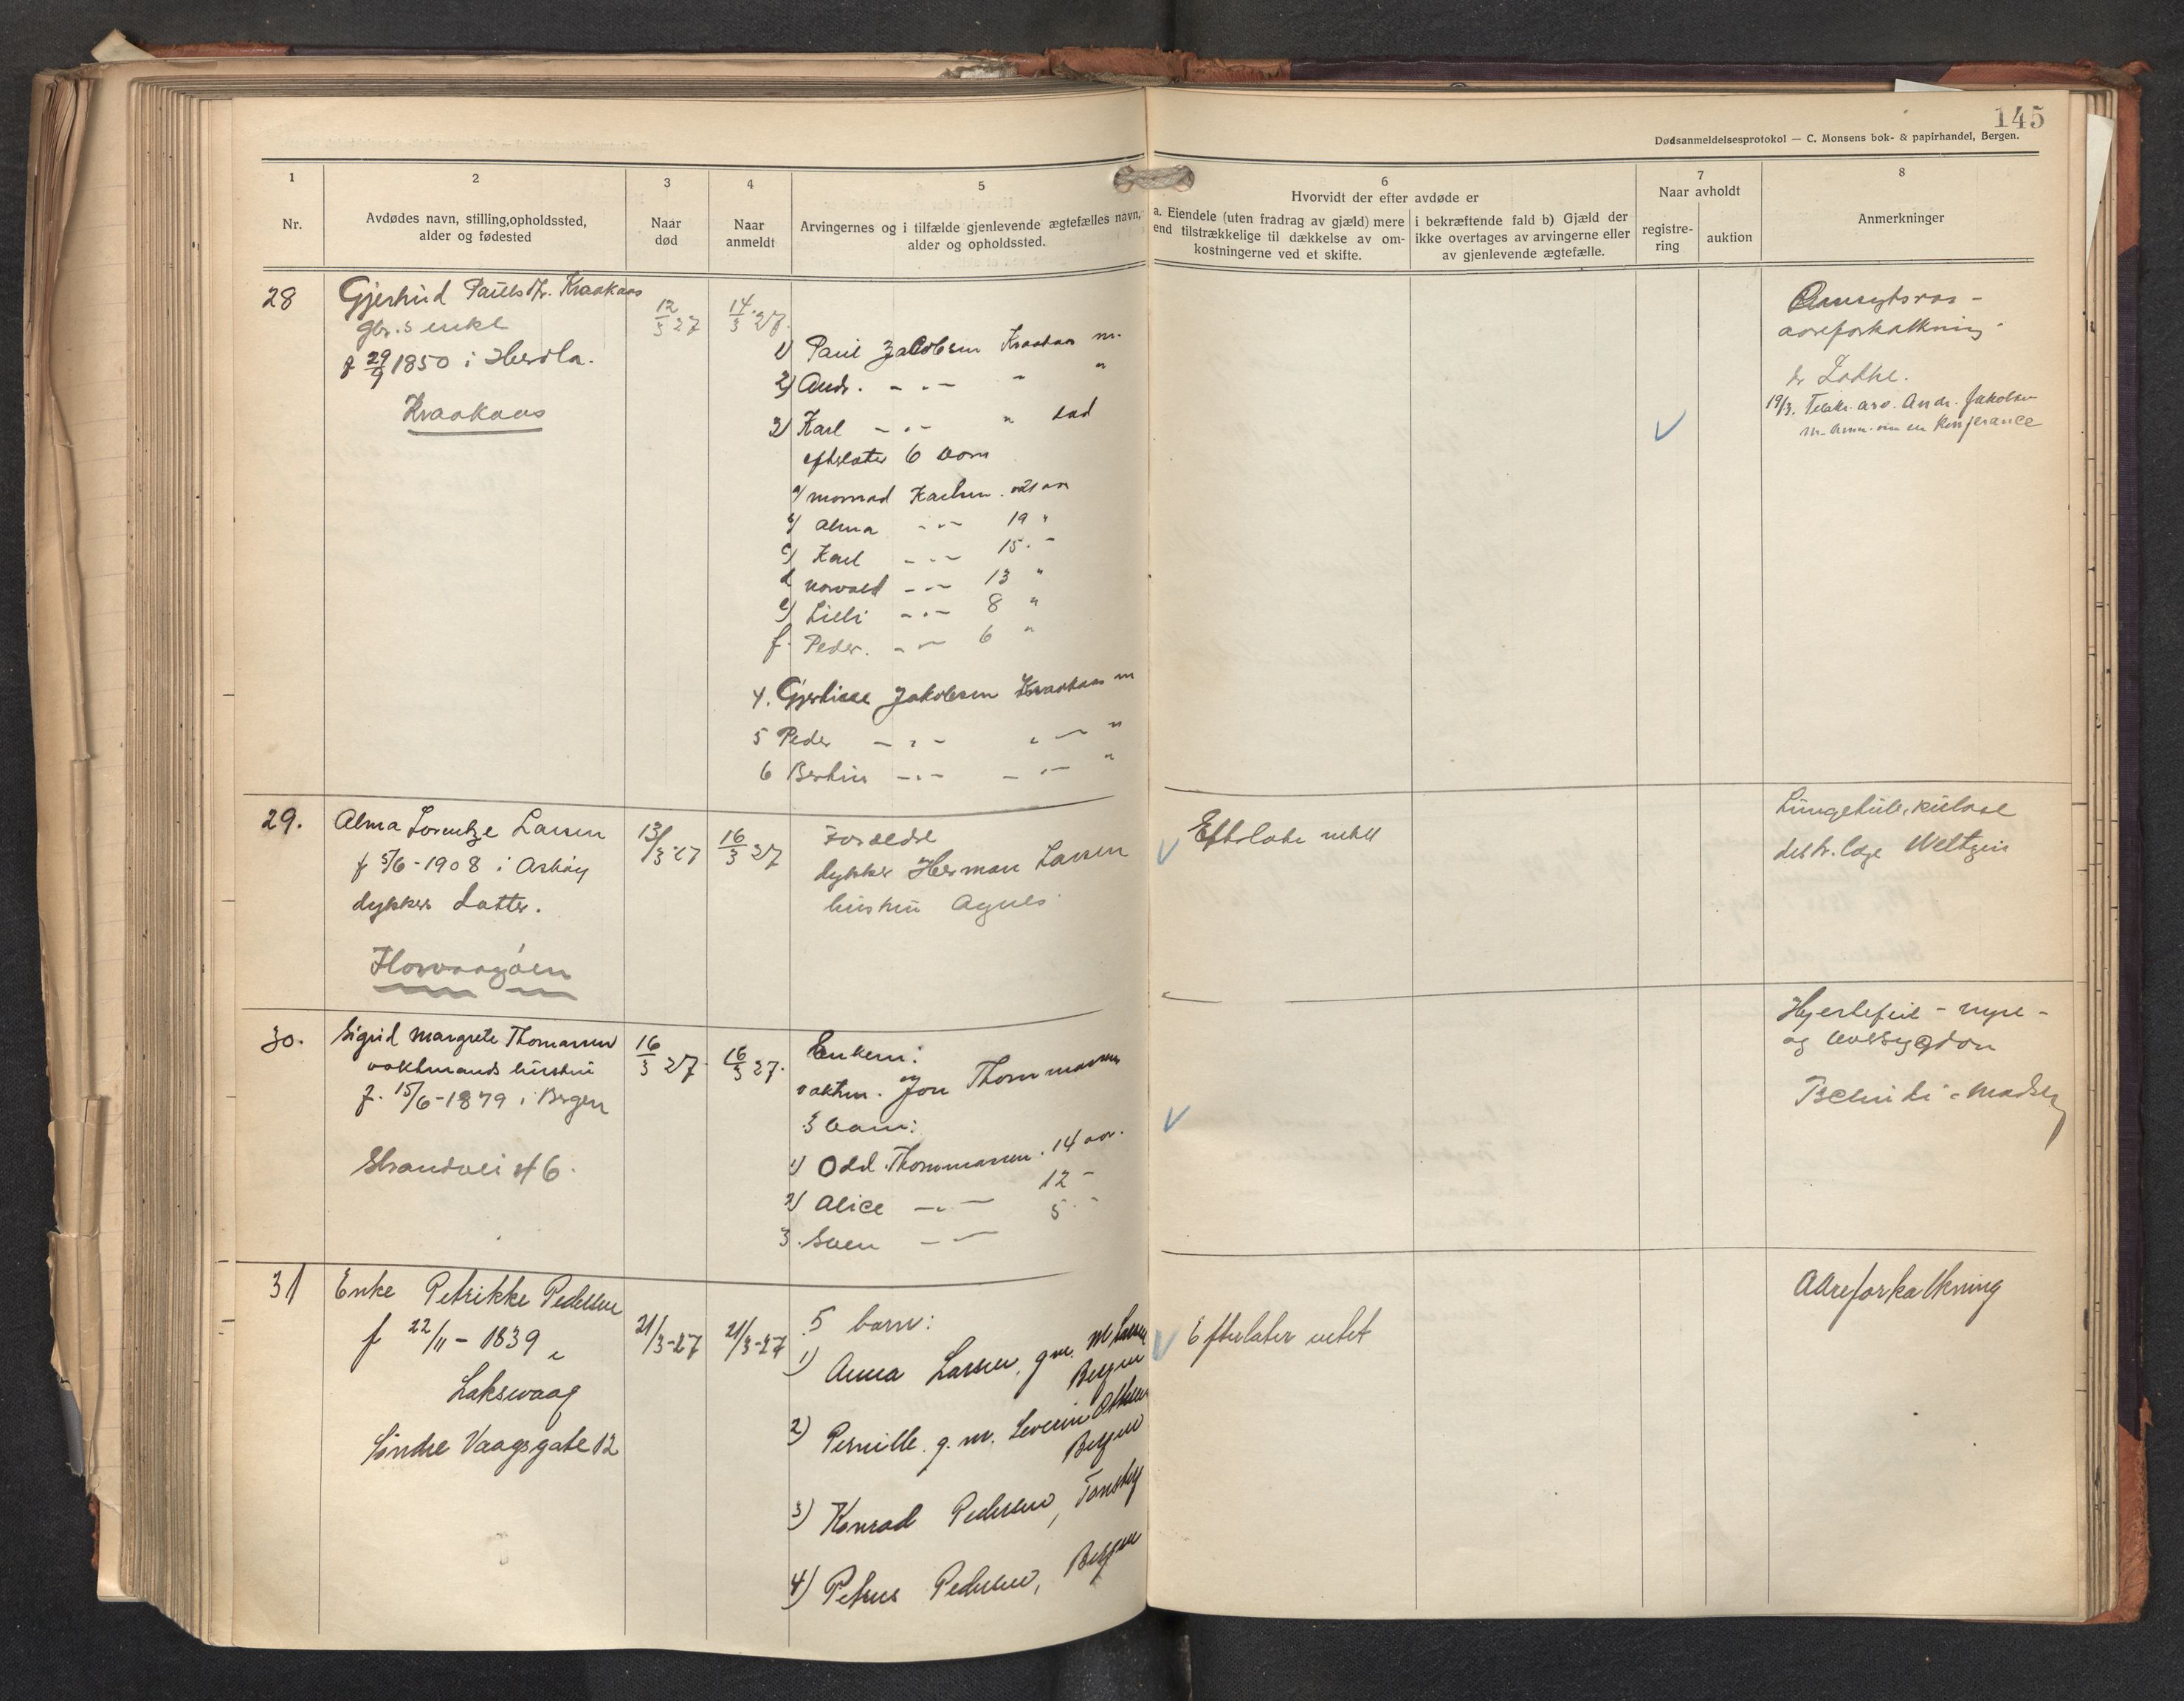 145
Dødsanmeldelsesprotokol — C. Monsens bok- & papirhandel, Bergen.
1
Nr.
2
Avdødes navn, stilling,opholdssted,
alder og fødested
3
Naar
død
4
Naar
anmeldt
5
Arvingernes og i tilfælde gjenlevende ægtefælles navn,
alder og opholdssted.
6
Hvorvidt der efter avdøde er
a. Eiendele (uten fradrag av gjæld) mere
end tilstrækkelige til dækkelse av om-
kostningerne ved et skifte.
i bekræftende fald b) Gjæld der
ikke overtages av arvingerne eller
av gjenlevende ægtefælle.
7
Naar avholdt
registre-
ring
auktion
8
Anmerkninger
28
Gjertrud Paulsdtr. Kraakaas
gbr.s enke
f 29/9 1850 i Herdla.
Kraakaas
12/3 27
14/3 27.
1) Paul Jakobsen Kraakaas m.
2) Andr. - " - - "
3) Karl - " - " død
efterlater 6 barn
a) Monrad Karlsen. 21 aar
b) Alma - " - 19 "
c) Karl - " - 15. "
d - " - 13 "
e) Lilli - " - 8 "
f. Peder. - " - 6 "
4. Jakobsen Kraakaas m
5 Peder - " - " - "
6 Bertin - " - - " - "
aareforkalkning
19/3. Andr. Jakobsen
m. om en Konferance
29.
Alma Lorentze Larsen
f 5/6-1908 i Askøy
dykkers datter.
Florvaagøen
13/3 27
16/3 27
Forældre
dykker Herman Larsen
hustru Agnes
Efterlater intet
Lungetuberkulose
distr. læge Weltzin
30.
Sigrid Margrete Thomassen
vaktmands hustru
f. 15/6-1879 i Bergen
Strandvei 46.
16/3 27.
16/3 27.
Enkem:
vaktm. Jon Thommassen
3 barn:
1) Odd Thommassen. 14 aar.
2) Alice - " - 12 -
3. Svein - " - 5 -
Hjertefeil - nyre -
og
Madsen
31
Enke Petrikke Pedersen
f 22/11 - 1839 i
Laksevaag
Søndre Vaagsgate 12
21/3-27
21/3-27
5 barn:
1) Anna Larsen, g.m. M Larsen
Bergen
2) Pernille g. m. Severin
Bergen
3) Konrad Pedersen, Tønsberg
4) Petrus Pedersen, Bergen
Efterlater intet
Aareforkalkning